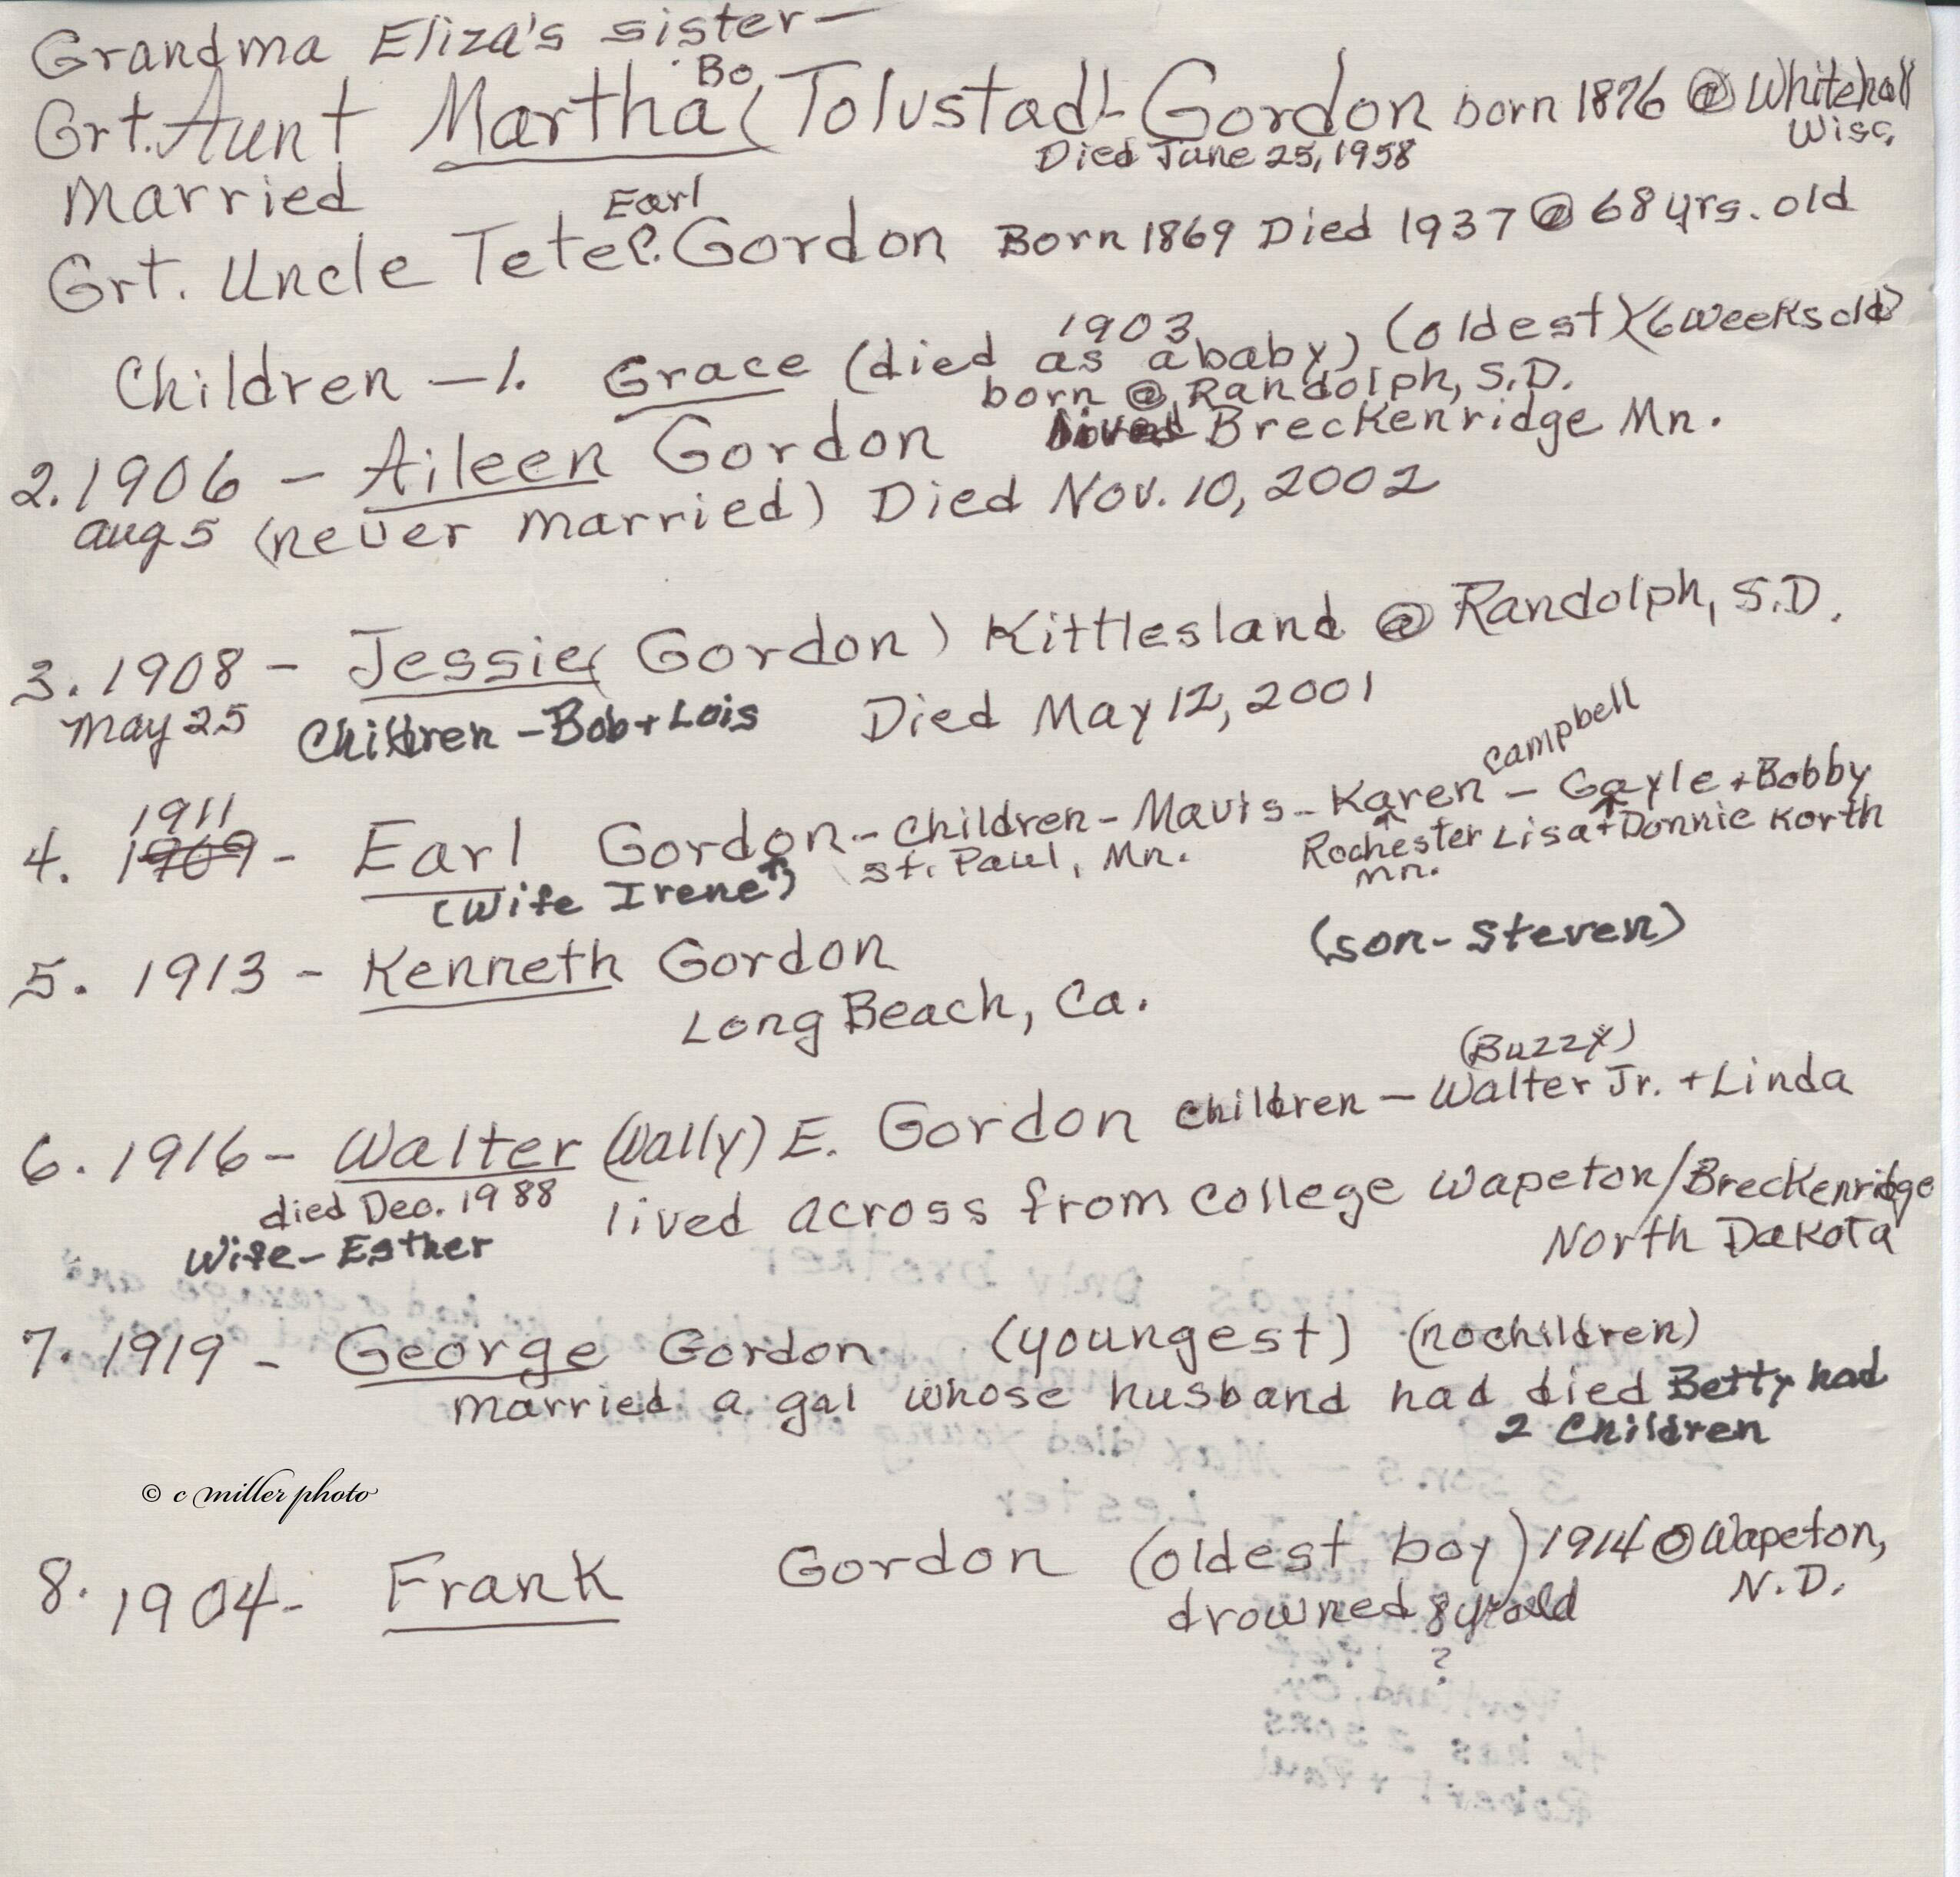 Grandma Eliza's sister—
Grt. Aunt Martha Bo (Tolvstad) - Gordon born 1876 @ Whitehall
Wisc.
Died June 25, 1958
Married
Earl
Grt. Uncle Tete P. Gordon Born 1869 Died 1937 @ 68 yrs. old
1903
Children — 1. Grace (died as a baby) (oldest) (6 weeks old)
born @ Randolph, S.D.
2. 1906 - Aileen Gordon lived Breckenridge Mn.
Aug 5 (never married) Died Nov. 10, 2002
3. 1908 - Jessie (Gordon) Kittlesland @ Randolph, S.D.
May 25 Children - Bob + Lois Died May 12, 2001
Campbell
1911
4. 1909 - Earl Gordon - Children - Mavis - Karen - Gayle + Bobby
St. Paul, Mn. Rochester Lisa + Donnie Korth
Mn.
(Wife Irene)
(son - Steven)
5. 1913 - Kenneth Gordon
Long Beach, Ca.
(Buzzy)
6. 1916 - Walter (Wally) E. Gordon Children - Walter Jr. + Linda
died Dec. 1988 lived across from college Wapeton/Breckenridge
Wife - Esther North Dakota
7. 1919 - George Gordon (youngest) (no children)
married a gal whose husband had died Betty had
2 Children
© c miller photo
8. 1904 - Frank Gordon (oldest boy) 1914 @ Wapeton,
N.D.
drowned 8 yr old
?